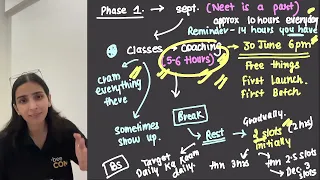 Phase 1. → sept. (Neet is a part)
approx 10 hours everyday
Reminder - 14 hours you have
Classes
Coaching
(5-6 Hours)
30 June 6pm
Free things
First Launch.
First Batch
cram
everything
there
sometimes
show up.
Break
Rest
Gradually.
3 slots (2 hrs)
initially
BS
Target
Daily Ka
daily.
thn 3hrs
thn 2.5 slots
3
slots
CON